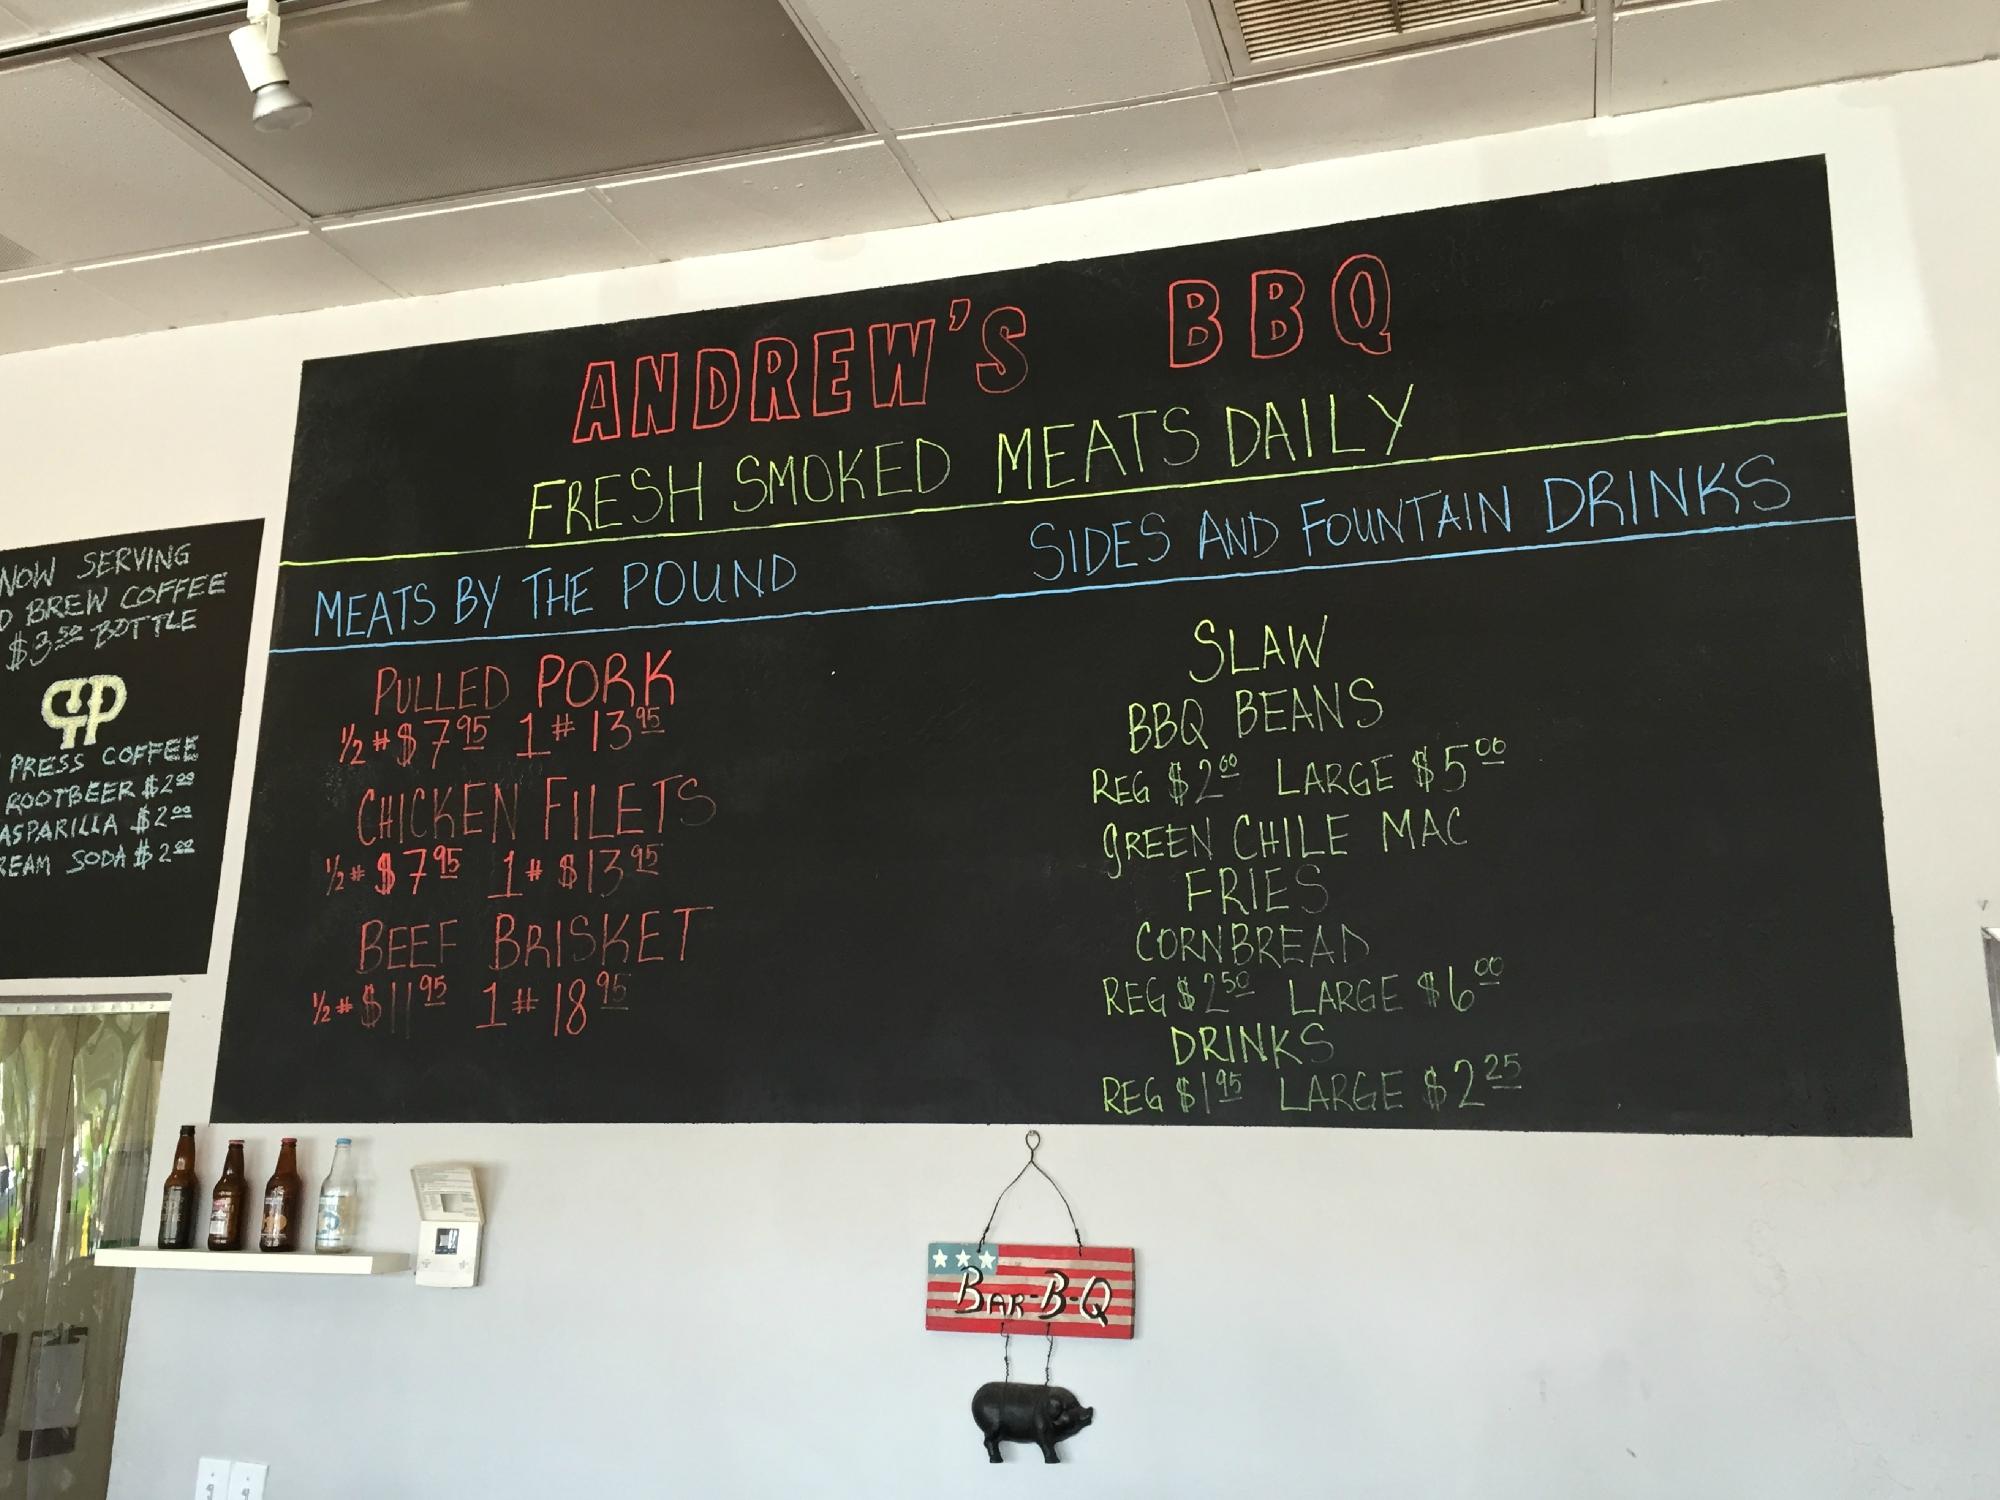 ANDREW'S BBQ
FRESH SMOKED MEATS DAILY
MEATS BY THE POUND
PULLED PORK
1/2 # $7.95 1 # 13.95
CHICKEN FILETS
1/2 # $7.95 1 # $13.95
BEEF BRISKET
1/2 # $11.95 1 # 18.95
SIDES AND FOUNTAIN DRINKS
SLAW
BBQ BEANS
REG $2.00 LARGE $5.00
GREEN CHILE MAC
FRIES
CORNBREAD
REG $2.50 LARGE $6.00
DRINKS
REG $1.95 LARGE $2.25
NOW SERVING
D BREW COFFEE
$3.50 BOTTLE
PRESS COFFEE
ROOTBEER $2.00
ASPARILLA $2.00
REAM SODA $2.00
BAR-B-Q